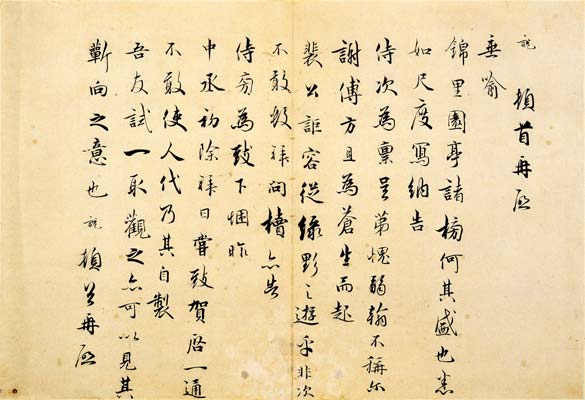 說 頓首再啟
垂喻
錦里園亭諸榜何其盛也悉
如尺度寫納告
侍次為稟呈第愧弱翰不稱尔
謝傅方且為蒼生而起
裴公詎容從綠野之遊乎非次
不敢數拜問櫝亦告
侍旁為致下悃昨
中丞初除拜日嘗致賀啟一通
不敢使人代乃其自製
吾友試一取觀之亦可以見其
蘄向之意也 說 頓首再啟